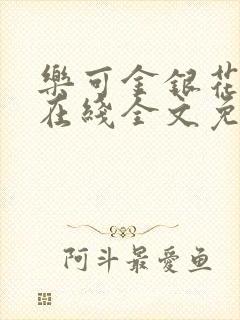 樂可金銀花
在綫全文免
阿斗最愛鱼